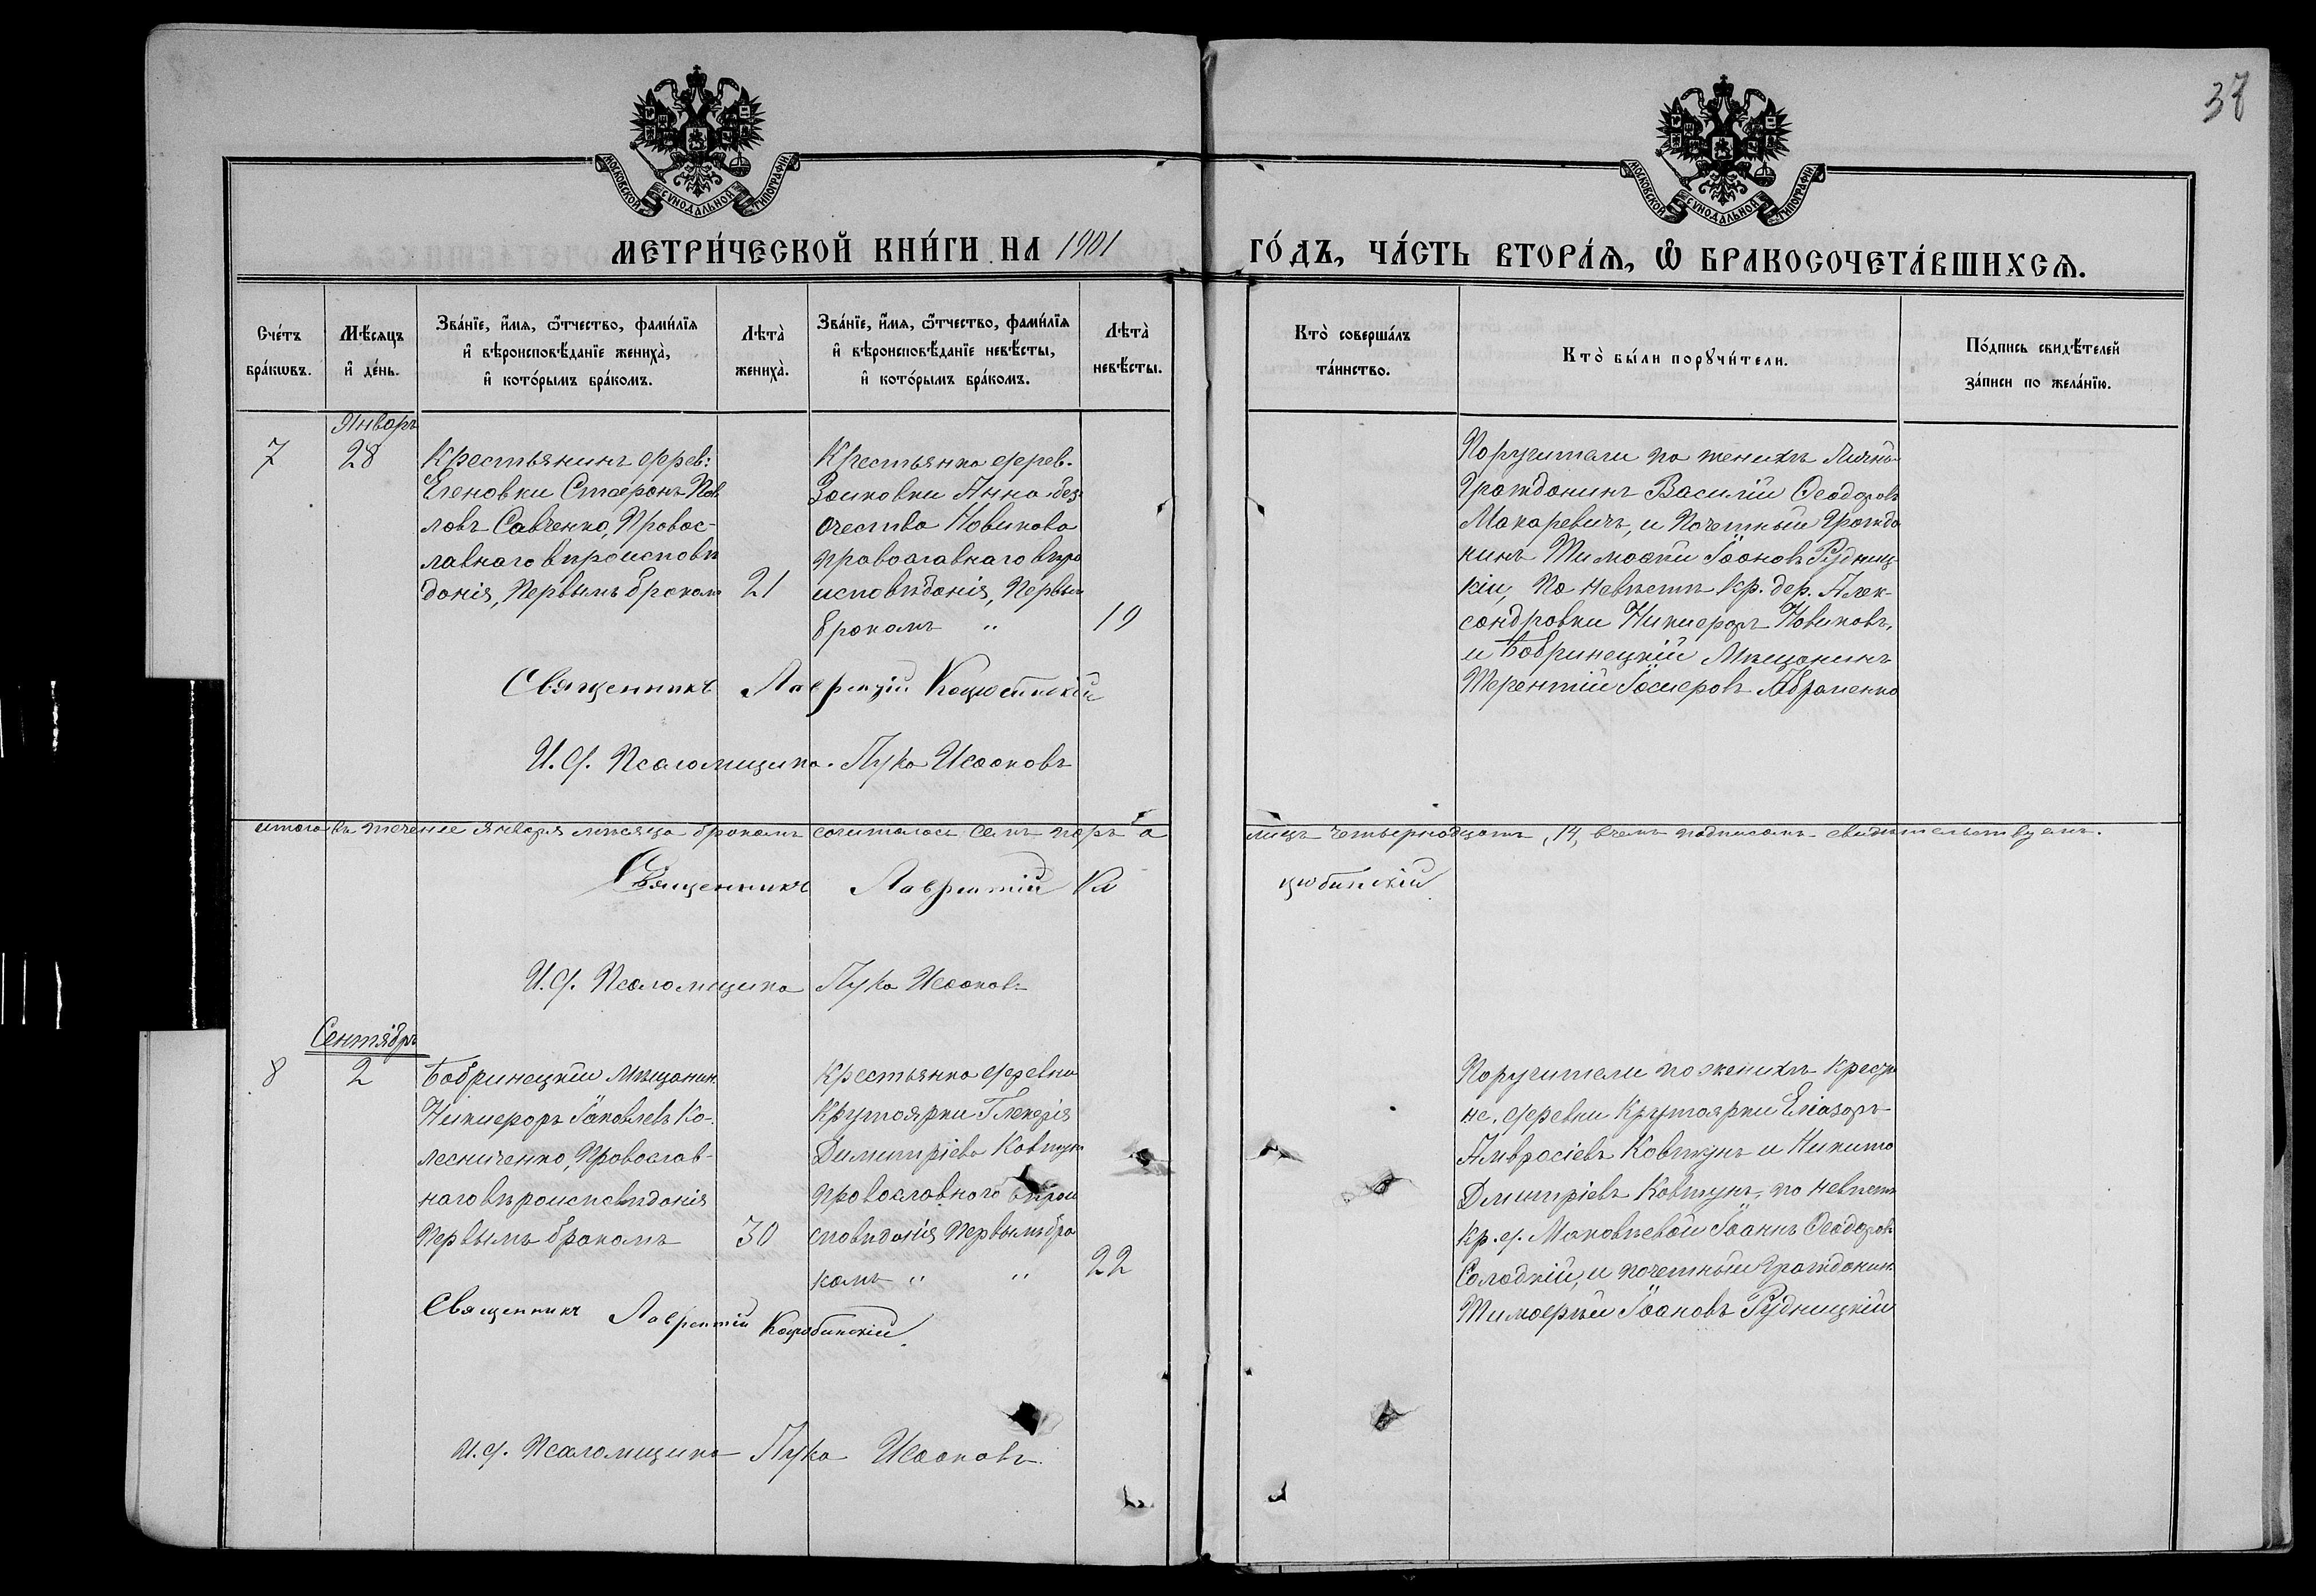 38
МОСКОВСКОЙ СѴНОДАЛЬНОЙ ТИПОГРАФІИ
МОСКОВСКОЙ СѴНОДАЛЬНОЙ ТИПОГРАФІИ
МЕТРИ́ЧЕСКОЙ КНИ́ГИ НА 1901 ГО́ДЪ, ЧА́СТЬ ВТОРА́Ѧ, Ѡ҆ БРАКОСОЧЕТА́ВШИХСѦ.
Сче́тъ бра́кѡвъ.
Мѣ́сяцъ и҆ де́нь.
Зва́нїе, и҆́мѧ, ѻ҆́тчество, фами́лїѧ
и҆ вѣроисповѣ́данїе жениха̀,
и҆ кото́рымъ бра́комъ.
Лѣта̀ жениха̀.
Зва́нїе, и҆́мѧ, ѻ҆́тчество, фами́лїѧ
и҆ вѣроисповѣ́данїе невѣ́сты,
и҆ кото́рымъ бра́комъ.
Лѣта̀ невѣ́сты.
Кто̀ соверша́лъ та́инство.
Кто̀ бы́ли порꙋчи́тели.
По́дпись свидѣ́телей за́писи по жела́нїю.
7
Январь
28
Крестьянинъ дерев:
Еленовки Стефанъ Пав
ловъ Савченко, Правос-
лавнаго вѣроисповѣ
данія, Первымъ бракомъ
21
Крестьянка дерев.
Заиковки Анна без
очества Новикова
православнаго вѣро
исповѣданія, Первым
бракомъ "
19
Поручители по женихѣ Личн.
Гражданинъ Василій Ѳеодоровъ
Макаревичъ, и Почетный Гражда
нинъ Тимоѳей Іоановъ Рудниц-
кій, По невѣстѣ кр. дер. Алек-
сандровки Никифоръ Новиковъ,
и Бобринецкій Мѣщанинъ
Терентій Іосифовъ Абраменко
Священникъ Лаврентій Коцюбинскій
И. д. Псаломщика Лука Исааковъ
итого въ течение января мѣсяца бракомъ сочиталось семь паръ а лицъ четырнадцать, 14, вчемъ подписомъ свидѣтельствуемъ.
Священникъ Лаврентій Ко цюбинскій
И. д. Псаломщика Лука Исааковъ
Сентябрь
8
2
Бобринецкій Мѣщанин
Никифоръ Іаковлевъ Ко-
лесниченко, Православ-
наго вѣроисповѣданія
Первымъ бракомъ
30
Крестьянка деревни
Крутоярки Гликерія
Димитріева Ковтун
православного вѣрои
сповѣданія Первымъ бра
комъ " "
22
Поручители по женихѣ Крестья
не, деревни Крутоярки Еліазаръ
Амвросіевъ Ковтунъ и Никита
Дмитріевъ Ковтунъ, по невѣстѣ
кр. д. Маковѣевой Іоаннъ Ѳеодоров.
Солодкій, и почетный Гражданин
Тимофѣй Іоановъ Рудницкій
Священникъ Лаврентій Коцюбинскій.
И. д. Псаломщика Лука Исааковъ.